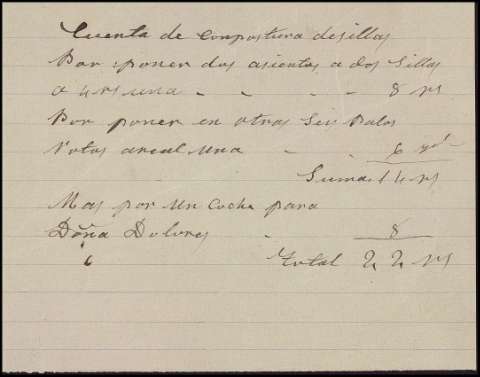 Cuenta de conpostura desillas
Por sponer dos asientos a dos Sillas
a 4 rs una - - - - 8 rs
Por poner en otras Seis Palos
Rotos areal una - - 6 rs
Suma 14 rs
Mas por un coche para
Doña Dolores - 8
Total 22 rs